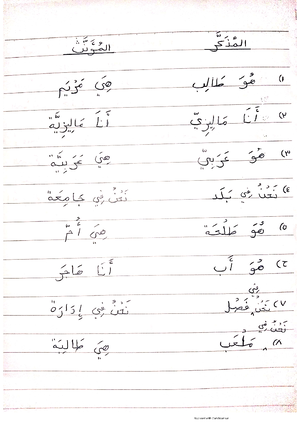 المُذَكَّر المُؤَنَّث
١) هُوَ طَالِب هِيَ مَرْيَم
٢) أَنَا مَالِيزِيّ أَنَا مَالِيزِيَّة
٣) هُوَ عَرَبِيّ هِيَ عَرَبِيَّة
٤) نَحْنُ فِي بَلَد نَحْنُ فِي جَامِعَة
٥) هُوَ طَلْحَة هِيَ أُمّ
٦) هُوَ أَب أَنَا هَاجَر
٧) نَحْنُ فِي فَصْل نَحْنُ فِي إِدَارَة
٨) نَحْنُ فِي مَلْعَب هِيَ طَالِبَة